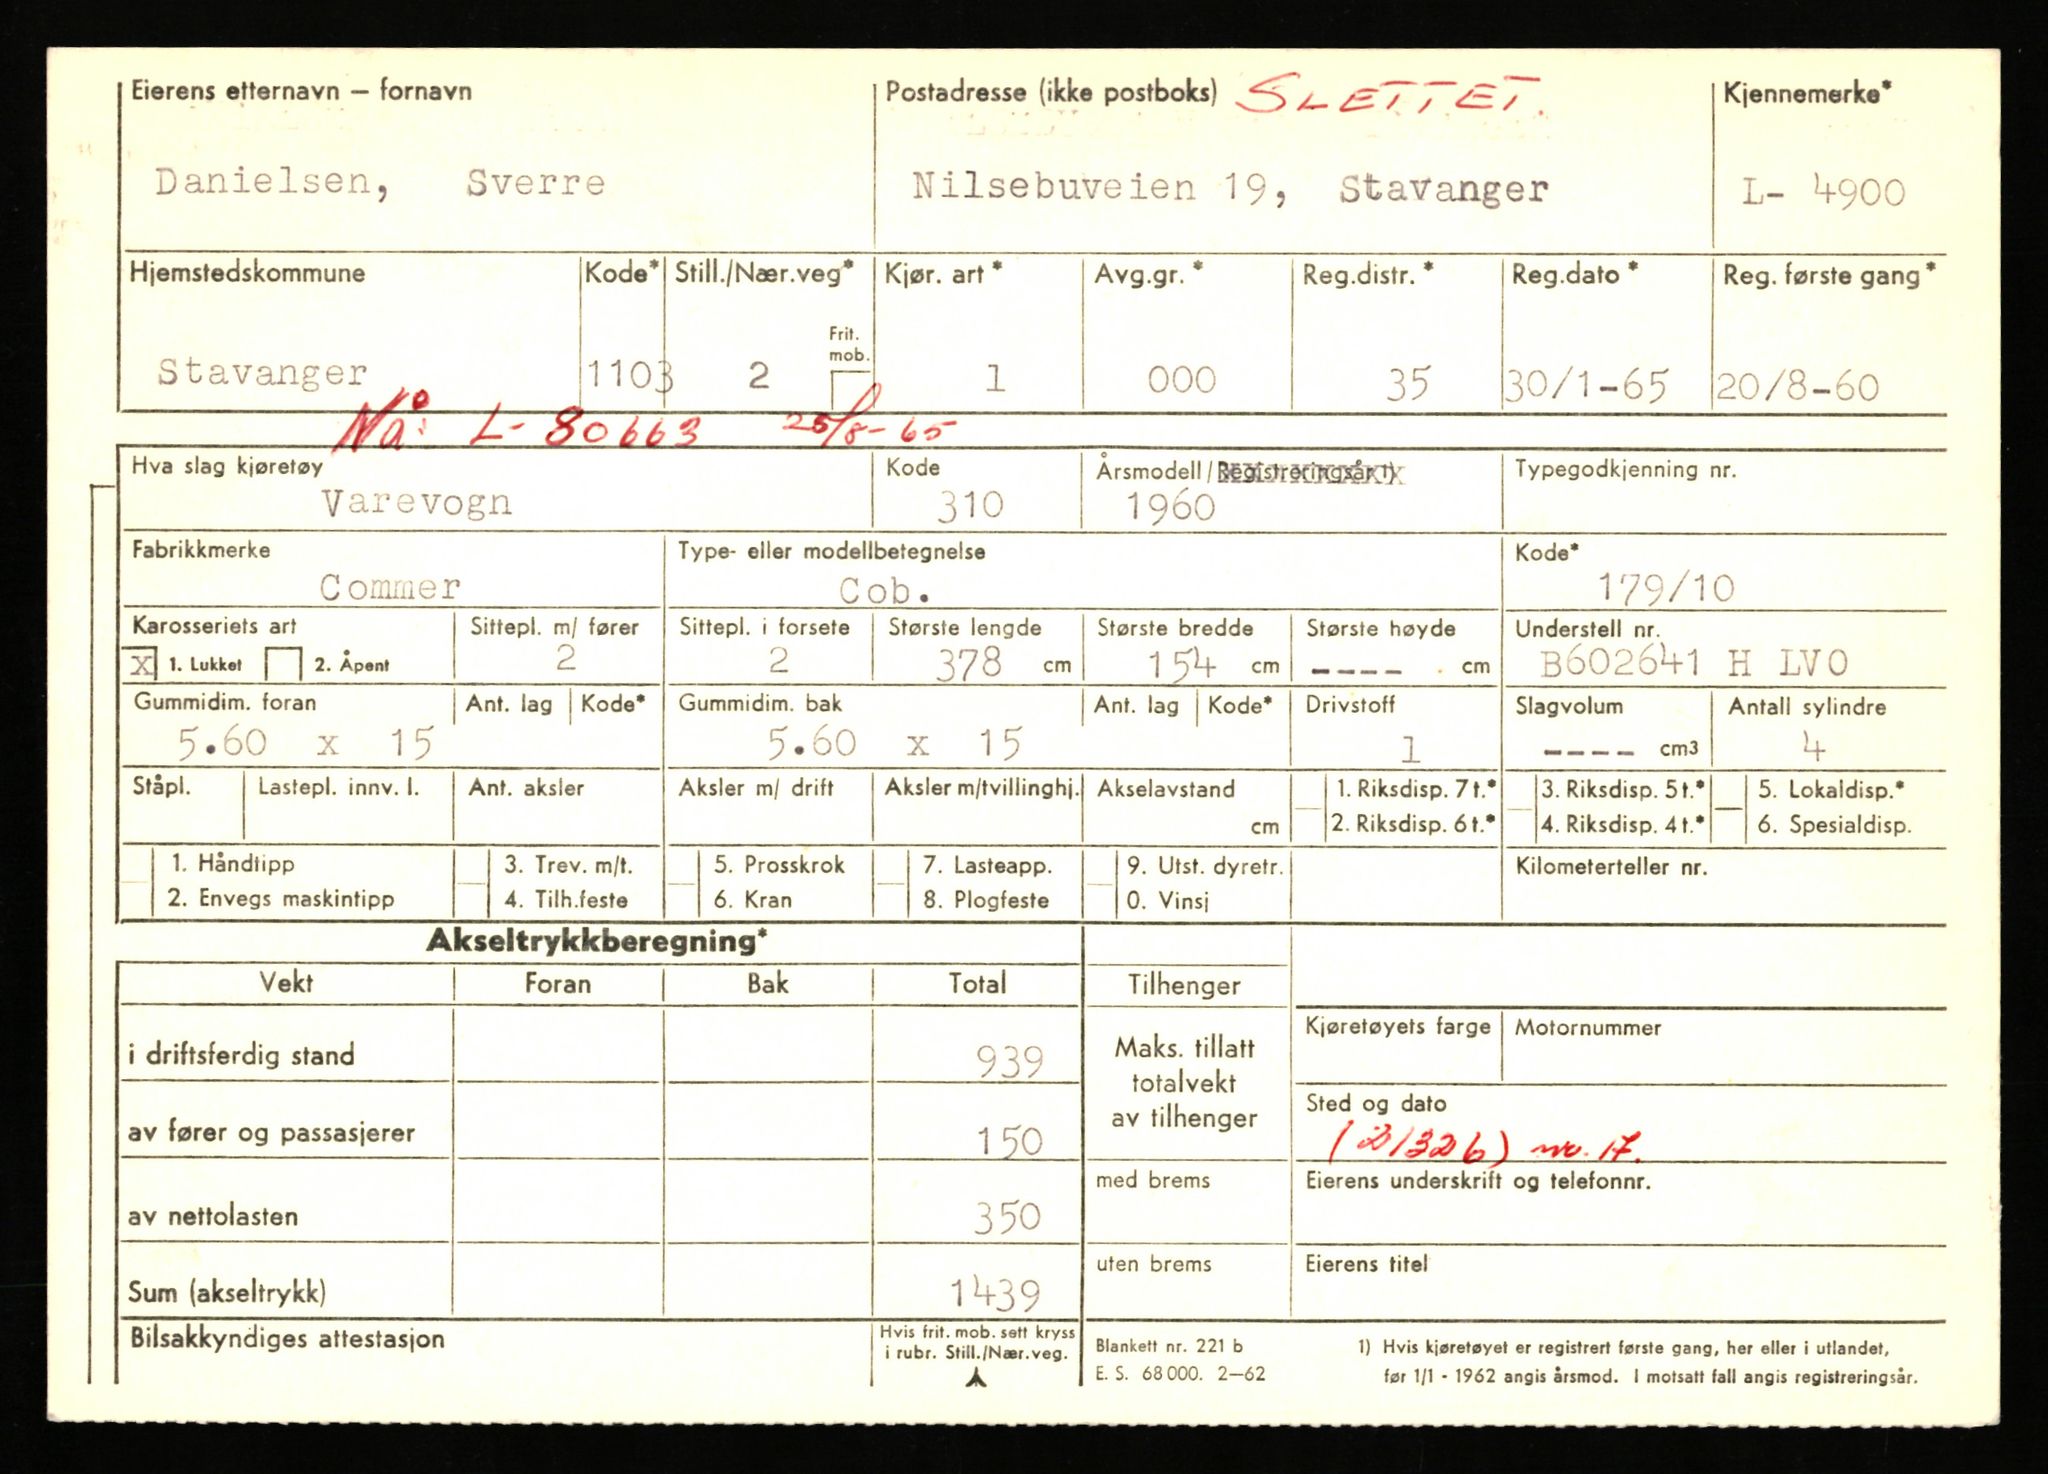 Eierens etternavn — fornavn
Postadresse (ikke postboks) SLETTET.
Kjennemerke*
Danielsen, Sverre
Nilsebuveien 19, Stavanger
L- 4900
Hjemstedskommune
Kode*
Still./Nær.veg*
Kjør. art*
Avg.gr.*
Reg.distr.*
Reg.dato*
Reg. første gang*
Frit. mob.
Stavanger
1103
2
1
000
35
30/1-65
20/8-60
Nå: L- 80663 25/8-65
Hva slag kjøretøy
Kode
Årsmodell/Registreringsår 1)
Typegodkjenning nr.
Varevogn
310
1960
Fabrikkmerke
Type- eller modellbetegnelse
Kode*
Commer
Cob.
179/10
Karosseriets art
Sittepl. m/ fører
Sittepl. i forsete
Største lengde
Største bredde
Største høyde
Understell nr.
X 1. Lukket
2. Åpent
2
2
378 cm
154 cm
---- cm
B602641 H LVO
Gummidim. foran
Ant. lag
Kode*
Gummidim. bak
Ant. lag
Kode*
Drivstoff
Slagvolum
Antall sylindre
5.60 x 15
5.60 x 15
1
---- cm3
4
Ståpl.
Lastepl. innv. l.
Ant. aksler
Aksler m/ drift
Aksler m/tvillinghj.
Akselavstand
cm
1. Riksdisp. 7 t.*
2. Riksdisp. 6 t.*
3. Riksdisp. 5 t.*
4. Riksdisp. 4 t.*
5. Lokaldisp.*
6. Spesialdisp.
1. Håndtipp
2. Envegs maskintipp
3. Trev. m/t.
4. Tilh.feste
5. Prosskrok
6. Kran
7. Lasteapp.
8. Plogfeste
9. Utst. dyretr.
0. Vinsj
Kilometerteller nr.
Akseltrykkberegning*
Vekt
Foran
Bak
Total
Tilhenger
i driftsferdig stand
939
Maks. tillatt
totalvekt
av tilhenger
Kjøretøyets farge
Motornummer
av fører og passasjerer
150
Sted og dato
(21326) nr. 17.
av nettolasten
350
med brems
Eierens underskrift og telefonnr.
Sum (akseltrykk)
1439
uten brems
Eierens titel
Bilsakkyndiges attestasjon
Hvis frit. mob. sett kryss
i rubr. Still./Nær.veg.
Blankett nr. 221 b
E. S. 68 000. 2—62
1) Hvis kjøretøyet er registrert første gang, her eller i utlandet,
før 1/1 - 1962 angis årsmod. I motsatt fall angis registreringsår.